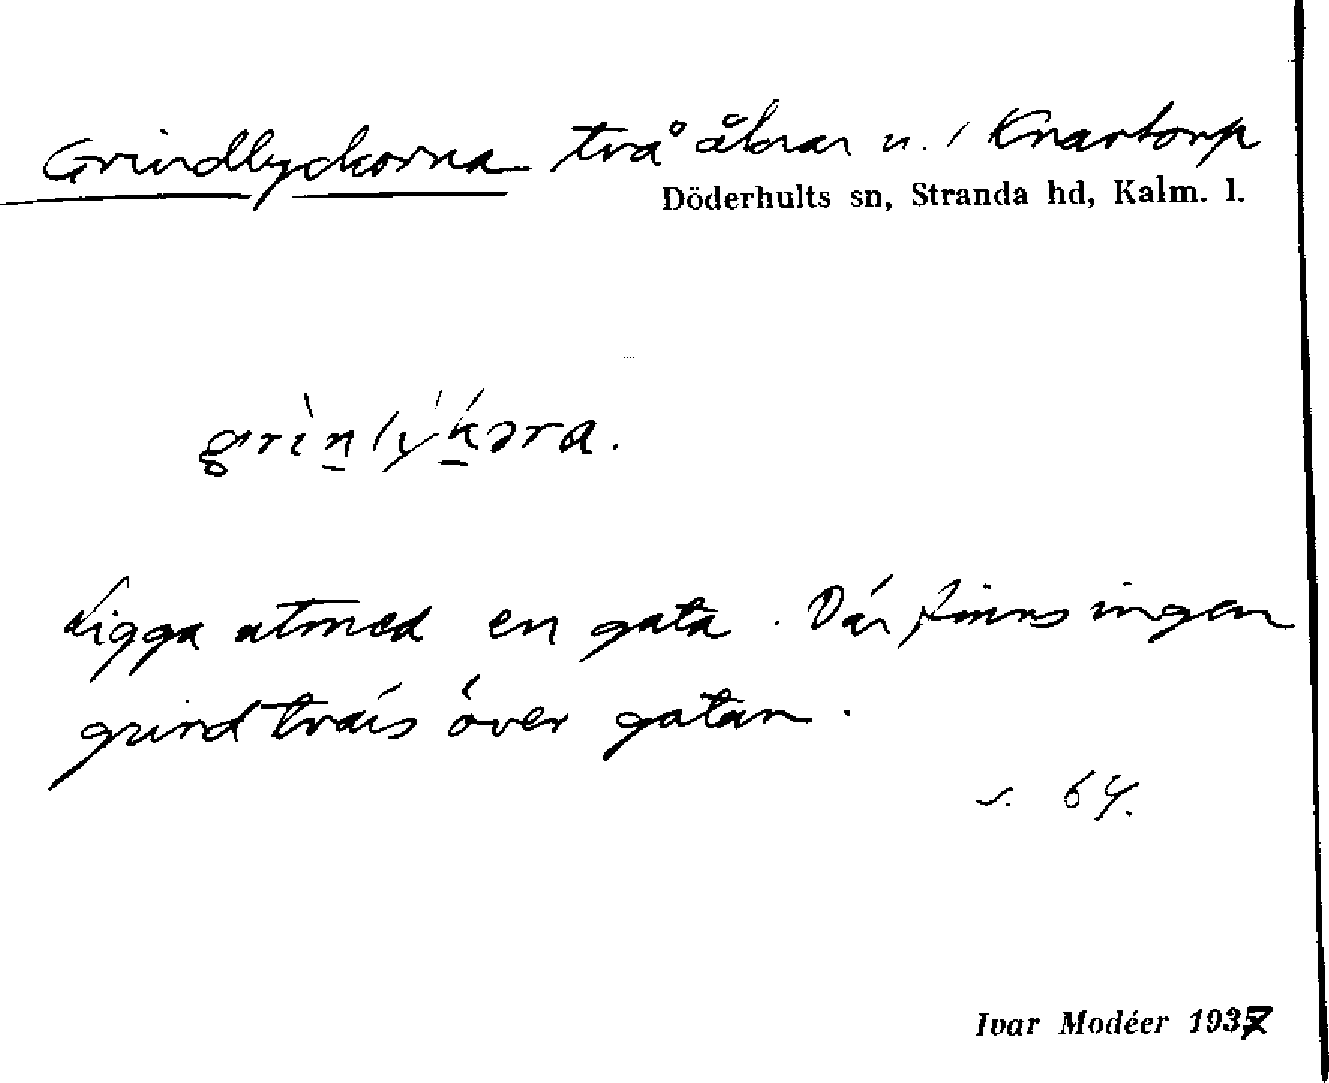 Grindlyckorna två åkrar n. i Knartorp
Döderhults sn, Stranda hd, Kalm. l.
grìn̲lýḱ̲əra.
Ligga utmed en gata. Där finns ingen
grind tvärs över gatan.
s. 64.
Ivar Modéer 1937